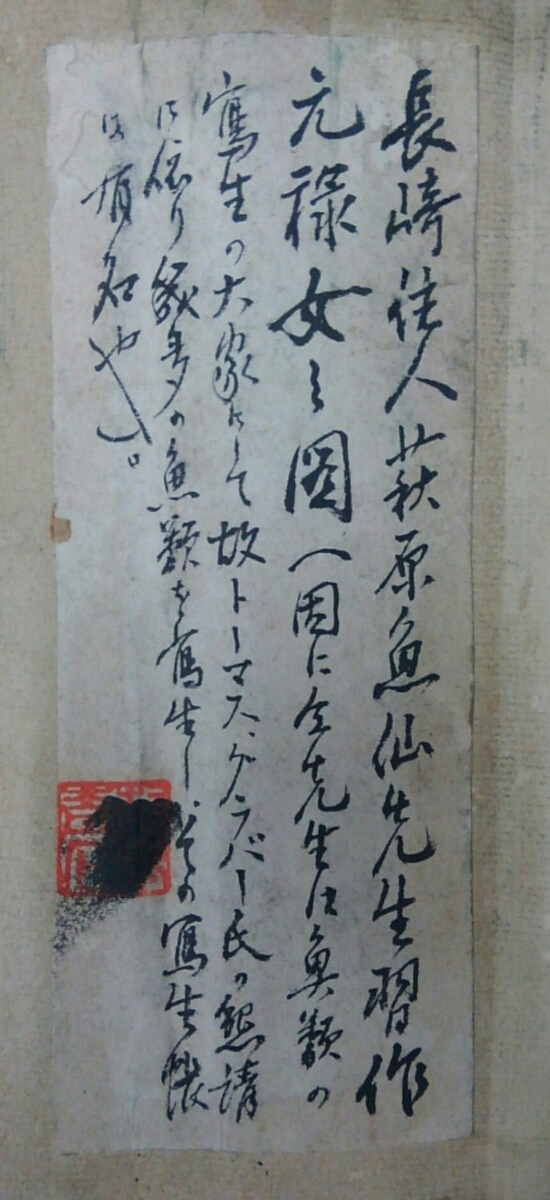 長崎住人萩原魚仙先生習作
元禄女之圖（因に仝先生は魚類の
寫生の大家にして故トーマス、グラバー氏の懇請
に依り幾多の魚類を寫生し、その寫生帳
は有名也。